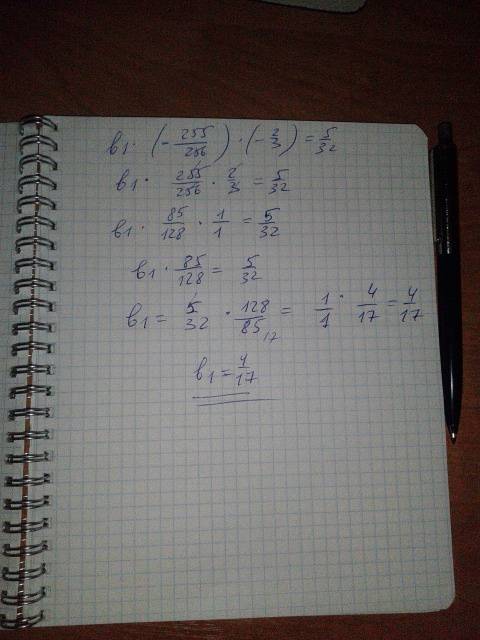 в1 · (- 255/256) · (- 2/3) = 5/32
в1 · 255/256 · 2/3 = 5/32
в1 · 85/128 · 1/1 = 5/32
в1 · 85/128 = 5/32
в1 = 5/32 · 128/85 17 = 1/1 · 4/17 = 4/17
в1 = 4/17